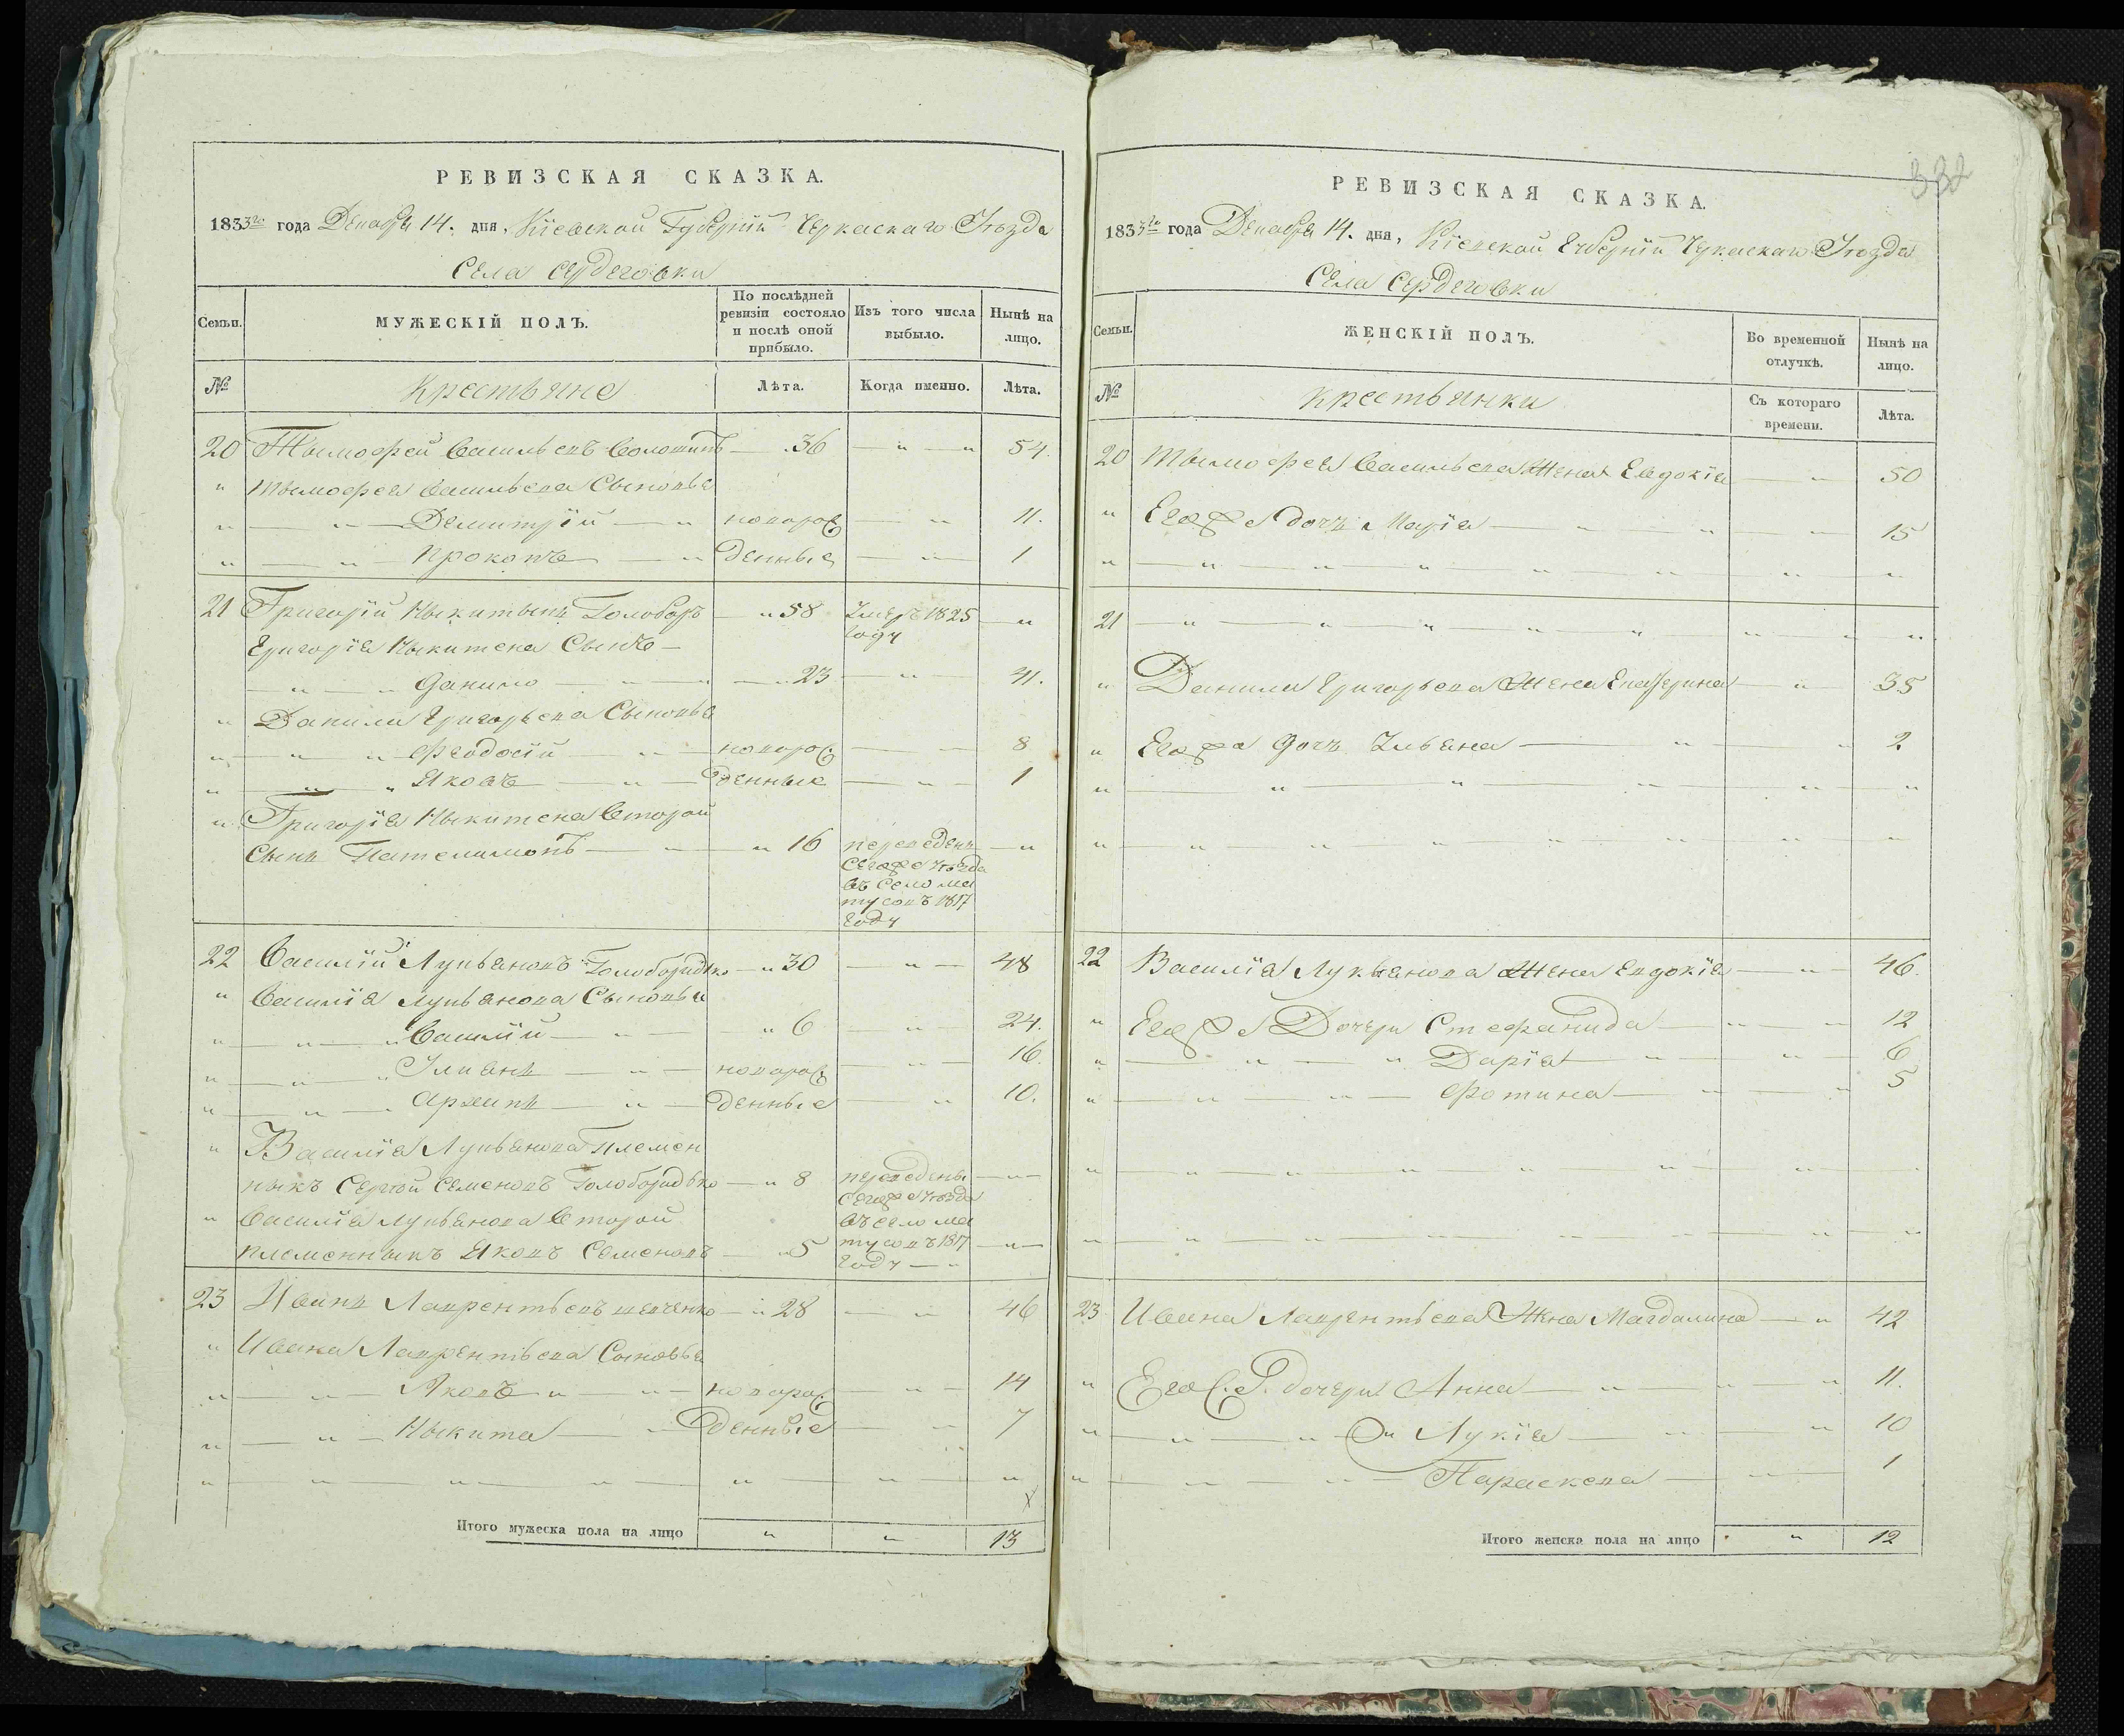 РЕВИЗСКАЯ СКАЗКА.
1833го года Декабря 14. дня, Кіевской Губерніи Черкаскаго Уѣзда
Села Сердеговки
Семьи.
МУЖЕСКІЙ ПОЛЪ.
По послѣдней ревизіи состояло и послѣ оной прибыло.
Изъ того числа выбыло.
Нынѣ на лицо.
№ Крестьяне Лѣта. Когда именно. Лѣта.
20 Тымофей Васильевъ 36 " " 54
" Тымофея Васильева Сыновья
" " Демитрій " новорож " 11.
" " Прокопъ " денные " 1
21 Григорій Ныкитынъ " 58 Умеръ 1825 году "
Григорія Ныкитена Сынъ
" " Данило " 23 " 41.
" Данила Григорьева Сыновья
" " " Феодосій " новорож " 8
" " " Яковъ " денные " 1
" Григорія Ныкитена Второй
Сынъ Пателимонъ " 16 переведенъ "
Сегожъ уѣзда
въ Село Ма
тусовъ 1817
году
22 Василій Лукьяновъ Голобородько " 30 " 48
" Василія Лукьянова Сыновья
" " " Василій " " 6 " 24.
" " " Улиянъ " новорож " 16.
" " Архипъ " денные " 10.
" Василія Лукьянова Племен
ныкъ Сергѣй Семеновъ Голобородько " 8 переведены "
Сегожъ уѣзда
" Василія Лукьянова Второй въ село Ма
племенныкъ Яковъ Семеновъ " 5 тусовъ 1817 "
году "
23 Иванъ Лаврентьевъ Шевченко " 28 " 46
" Ивана Лаврентьева Сыновья
" " Яковъ " " новорож " 14
" " Ныкита " денные " 7
" " " " " " "
Итого мужеска пола на лицо " " 13
332
РЕВИЗСКАЯ СКАЗКА.
1833го года Декабря 14. дня, Кіевской Губерніи Черкаскаго Уѣзда
Села Сердеговки
Семьи.
ЖЕНСКІЙ ПОЛЪ.
Во временной отлучкѣ.
Нынѣ на лицо.
№ Крестьянки Съ котораго времени. Лѣта.
20 Тымофея Васильева Жена Евдокія " 50
" Егожъ дочь Марія " " " 15
" " " " " " " "
21 " " " " " " " "
" Данила Григорьева Жена Екатерина " 35
" Егожъ дочь Ульяна " " 2
" " " " " "
" " " " " " " "
22 Василія Лукьянова Жена Евдокія " 46.
" Егожъ Дочери Стефанида " " 12
" " " Дарія " " 6
" " " Фотина " " 5
" " " " " "
" " " " " " " "
23 Ивана Лаврентьева Жена Магдалина " 42
" Его дочери Анна " " " 11.
" " " Лукія " " 10
" " " Параскева " 1
Итого женска пола на лицо " 12